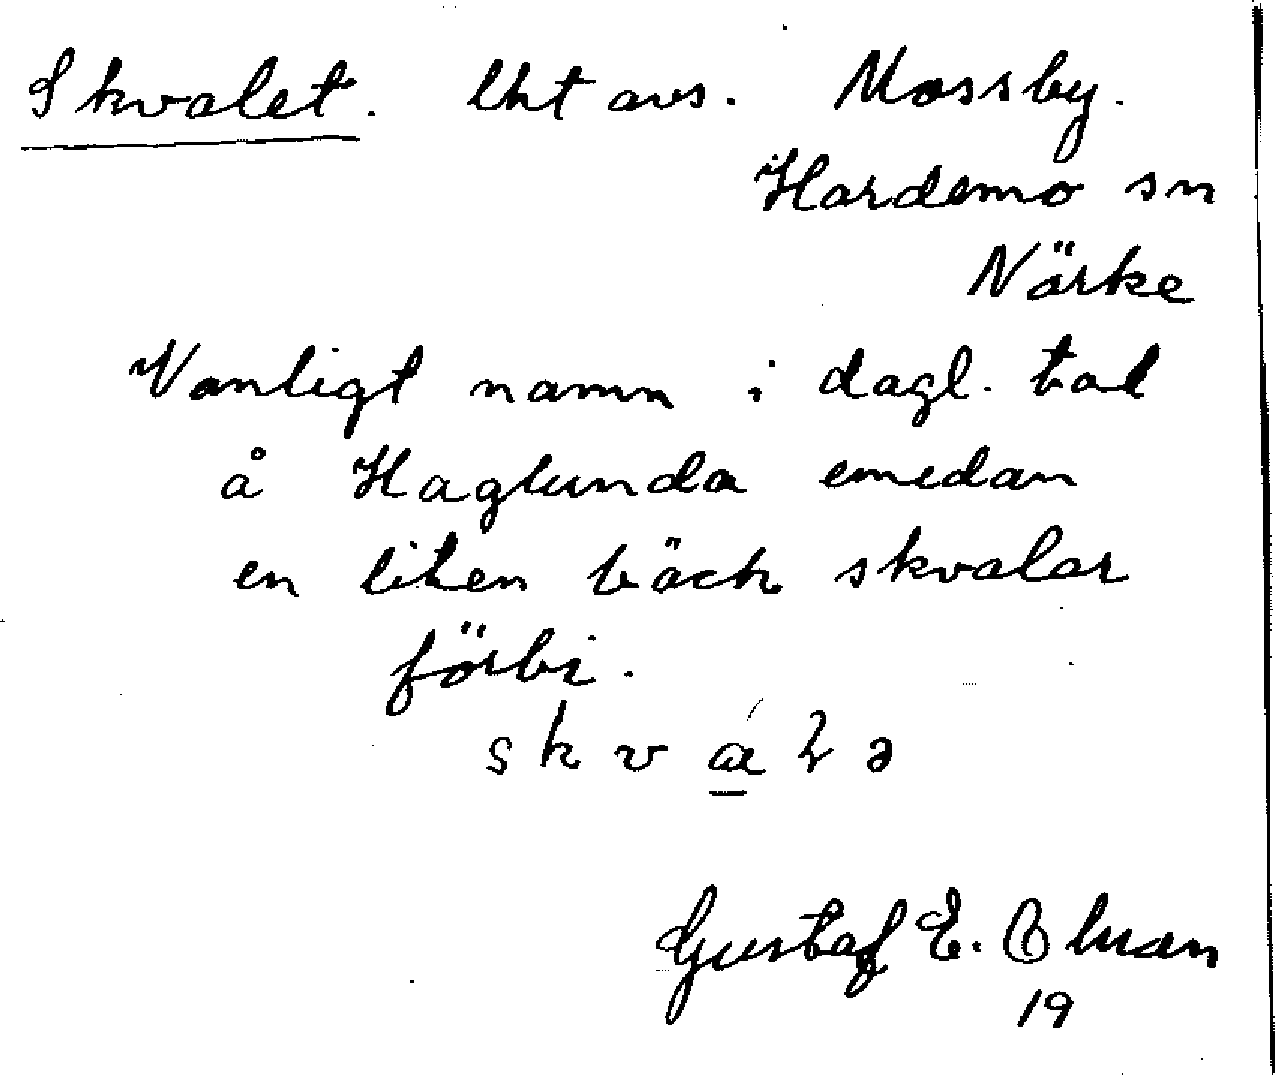 Skvalet. lht avs. Mossby.
Hardemo sn
Närke
Vanligt namn i dagl. tal
å Haglunda emedan
en liten bäck skvalar
förbi.
Gustaf E.
19